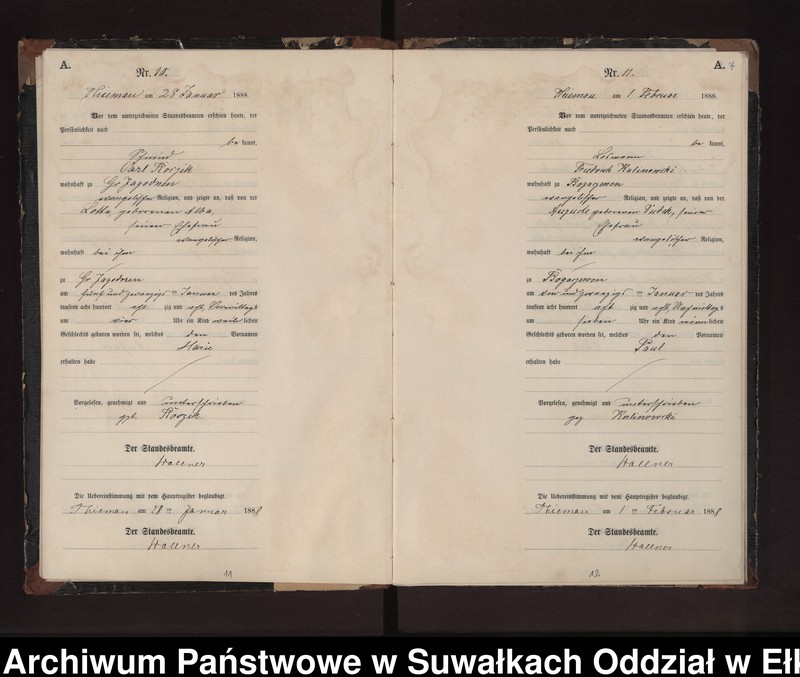 A.
Nr. 10.
Thiemau am 28 Januar 1888.
Vor dem unterzeichneten Standesbeamten erschien heute, der
Persönlichkeit nach
be kannt,
Schmied
Carl Korzik
wohnhaft zu Gr Jagodnen
evangelischer Religion, und zeigte an, daß von der
Lotte, geborenen Alba,
seiner Ehefrau
evangelischer Religion,
wohnhaft bei ihm
zu Gr Jagodnen
am fünf und zwanzigs ten Januar des Jahres
tausend acht hundert acht zig und acht, Vormittags
um vier Uhr ein Kind weib lichen
Geschlechts geboren worden sei, welches den Vornamen
Marie
erhalten habe
Vorgelesen, genehmigt und unterschrieben
gez. Korzik
Der Standesbeamte.
Wallner
Die Uebereinstimmung mit dem Hauptregister beglaubigt.
Thiemau am 28 ten Januar 1888
Der Standesbeamte.
Wallner
11
A. 7
Nr. 11.
Thiemau am 1 Februar 1888.
Vor dem unterzeichneten Standesbeamten erschien heute, der
Persönlichkeit nach
be kannt,
Losmann
Friedrich Kalinowski
wohnhaft zu
evangelischer Religion, und zeigte an, daß von der
Auguste geborenen seiner
Ehefrau
evangelischer Religion,
wohnhaft bei ihm
zu
am vier und zwanzigs ten Januar des Jahres
tausend acht hundert acht zig und acht, Nachmittags
um sieben Uhr ein Kind männ lichen
Geschlechts geboren worden sei, welches den Vornamen
Paul
erhalten habe
Vorgelesen, genehmigt und unterschrieben
gez Kalinowski
Der Standesbeamte.
Wallner
Die Uebereinstimmung mit dem Hauptregister beglaubigt.
Thiemau am 1 ten Februar 1888
Der Standesbeamte.
Wallner
12.
Archiwum Państwowe w Suwałkach Oddział w Ełk